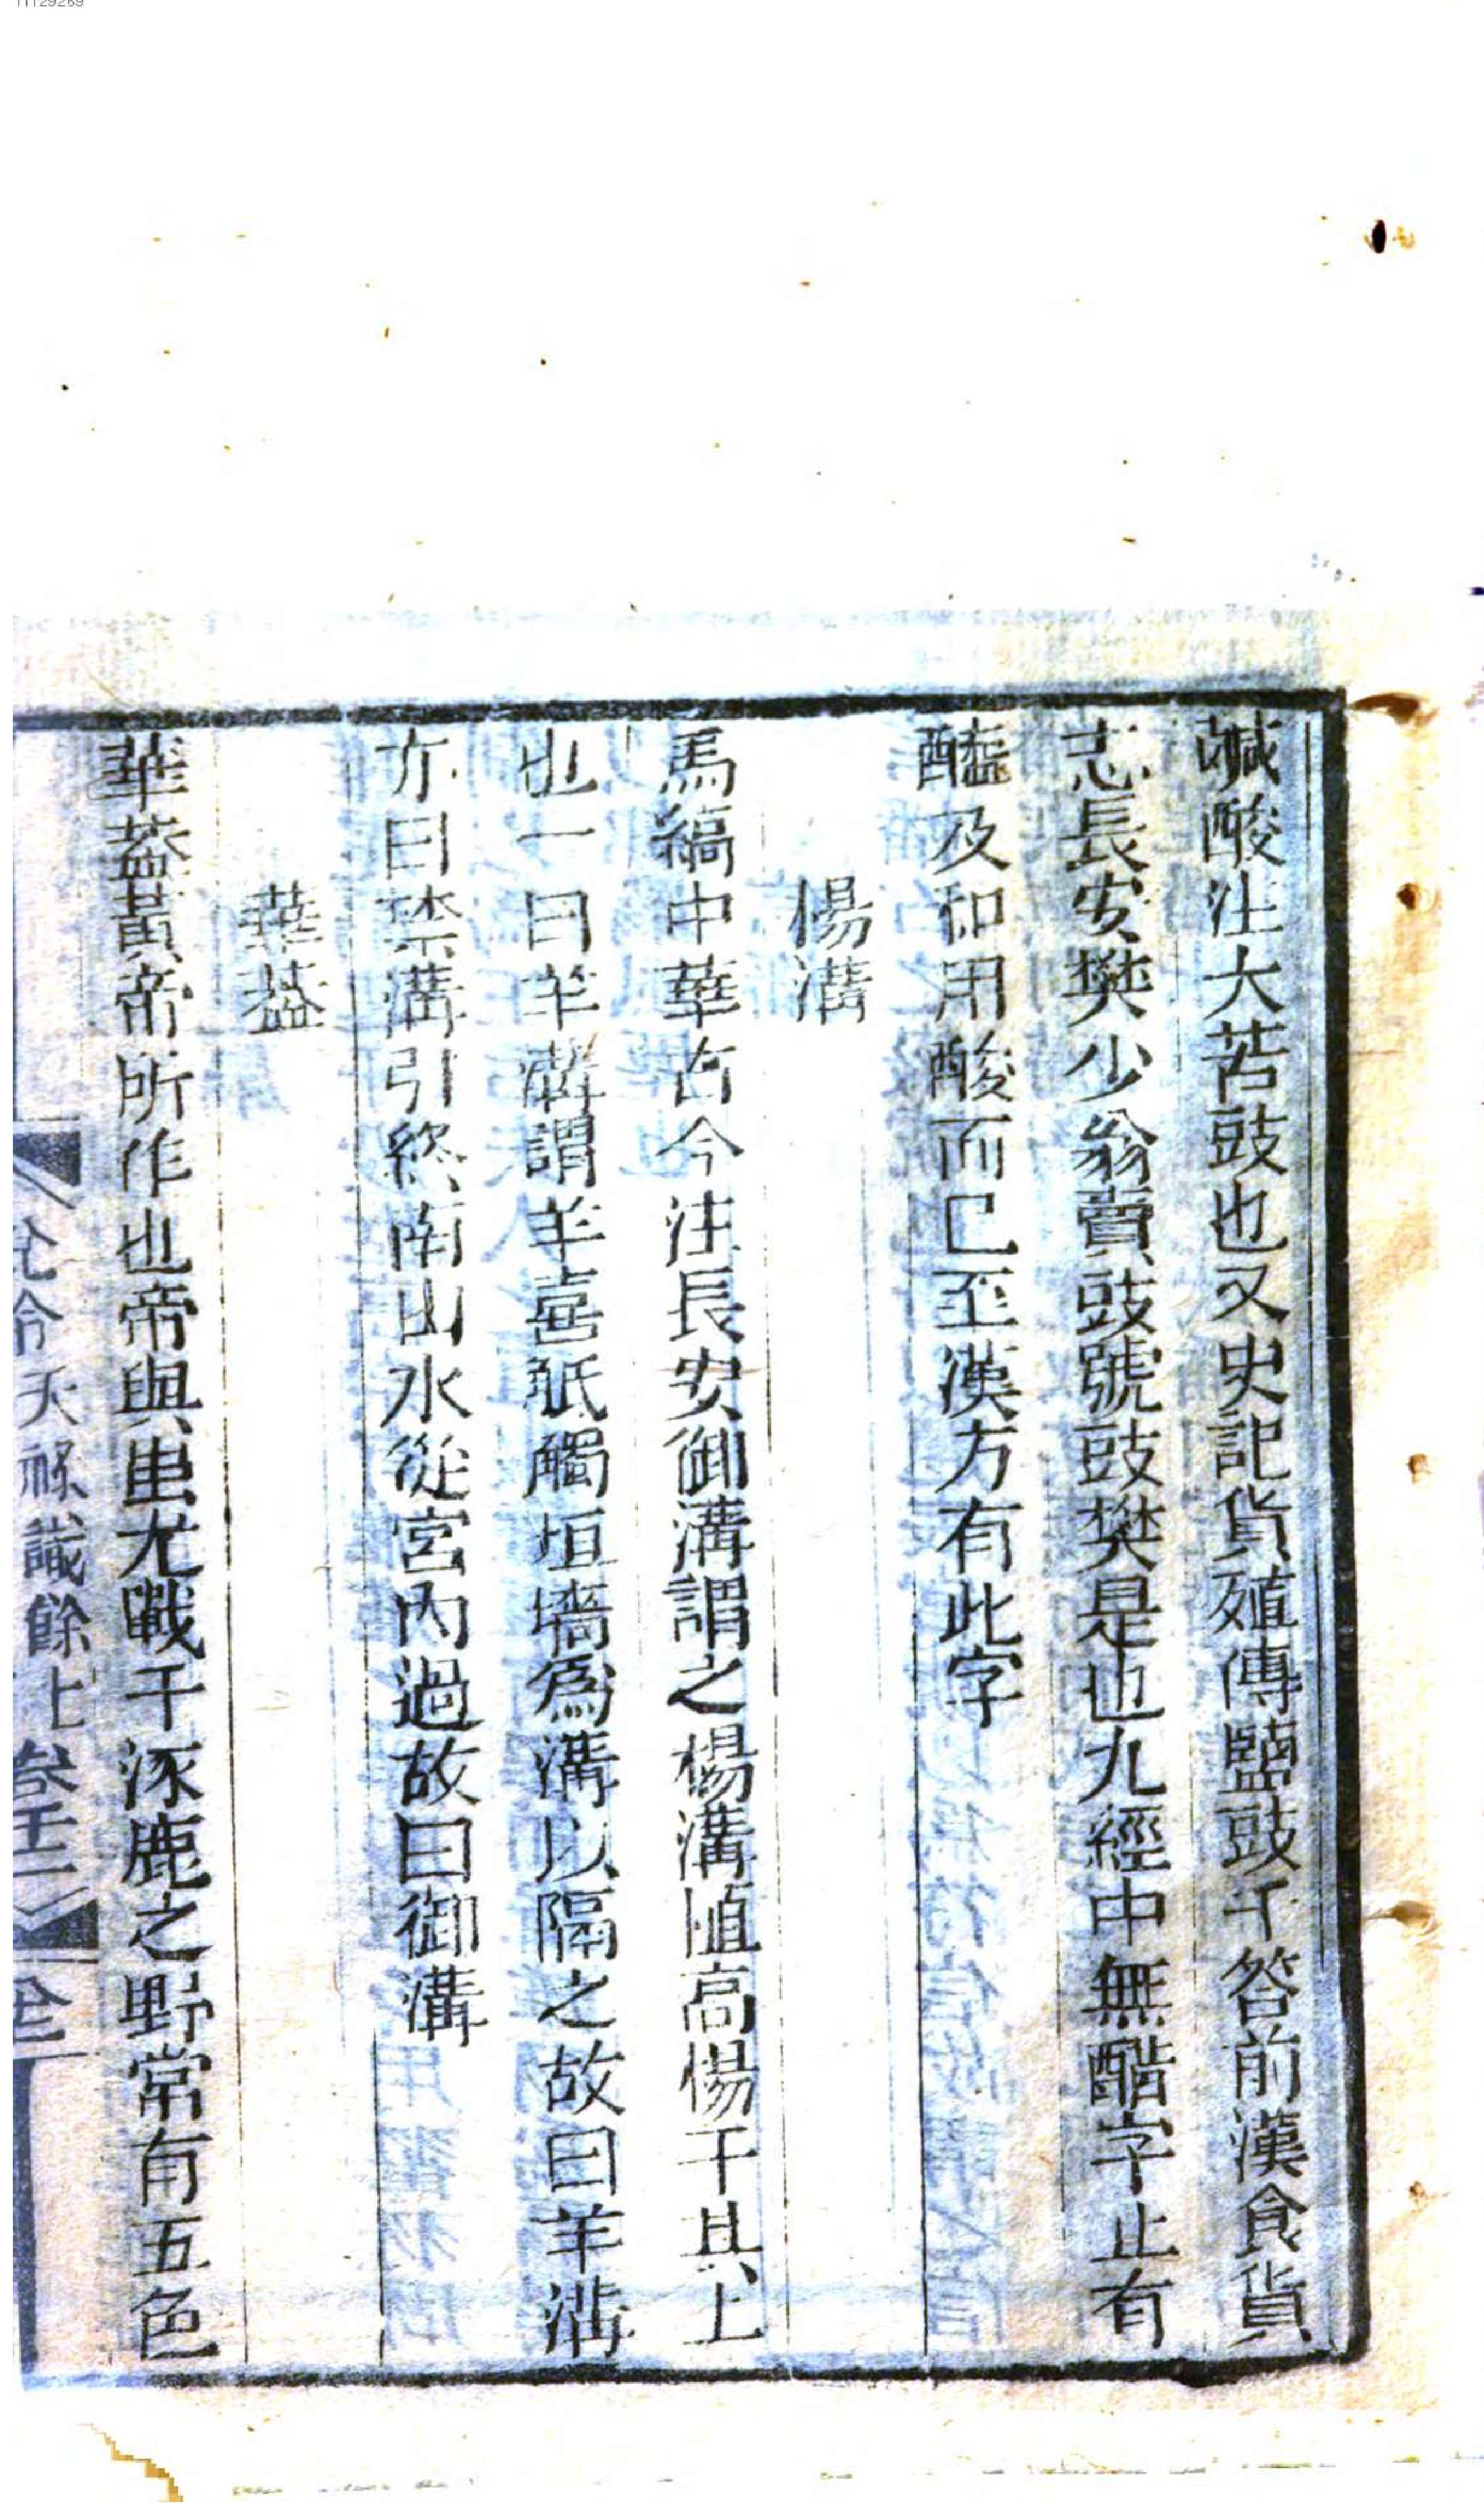 鹹酸注大苦豉也又史記貨殖傳鹽豉千答前漢食貨
志長安樊少翁賣豉號豉樊是也九經中無醋字止有
醯及和用酸而已至漢方有此字
楊溝
馬縞中華古今注長安御溝謂之楊溝植高楊于其上
也一曰羊溝謂羊喜觝觸垣墻爲溝以隔之故曰羊溝
亦曰禁溝引終南山水從宮內過故曰御溝
華葢
華葢黃帝所作也帝與蚩尤戰于涿鹿之野常有五色
識餘上